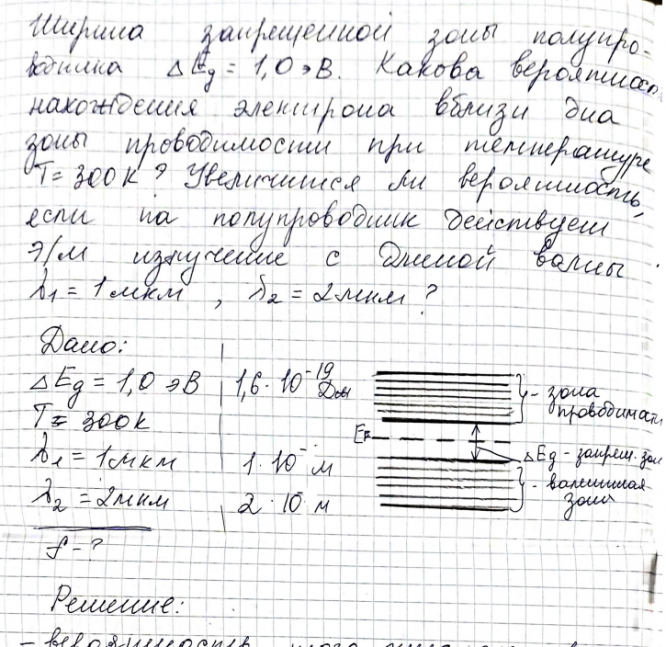 Ширина запрещенной зоны полупро-
водника ΔEg = 1,0 эВ. Какова вероятност
нахождения электрона вблизи дна
зоны проводимости при температуре
T = 300 К? Увеличится ли вероятность,
если на полупроводник действует
э/м излучение с длиной волны
λ1 = 1 мкм , λ2 = 2 мкм ?
Дано:
ΔEg = 1,0 эВ 1,6·10⁻¹⁹ Дж
T = 300 К
λ1 = 1 мкм 1·10⁻ м
λ2 = 2 мкм 2·10 м
f - ?
- зона
проводимости
EF
ΔEg - запрещ. зон
- валентная
зона
Решение:
- вероятность того